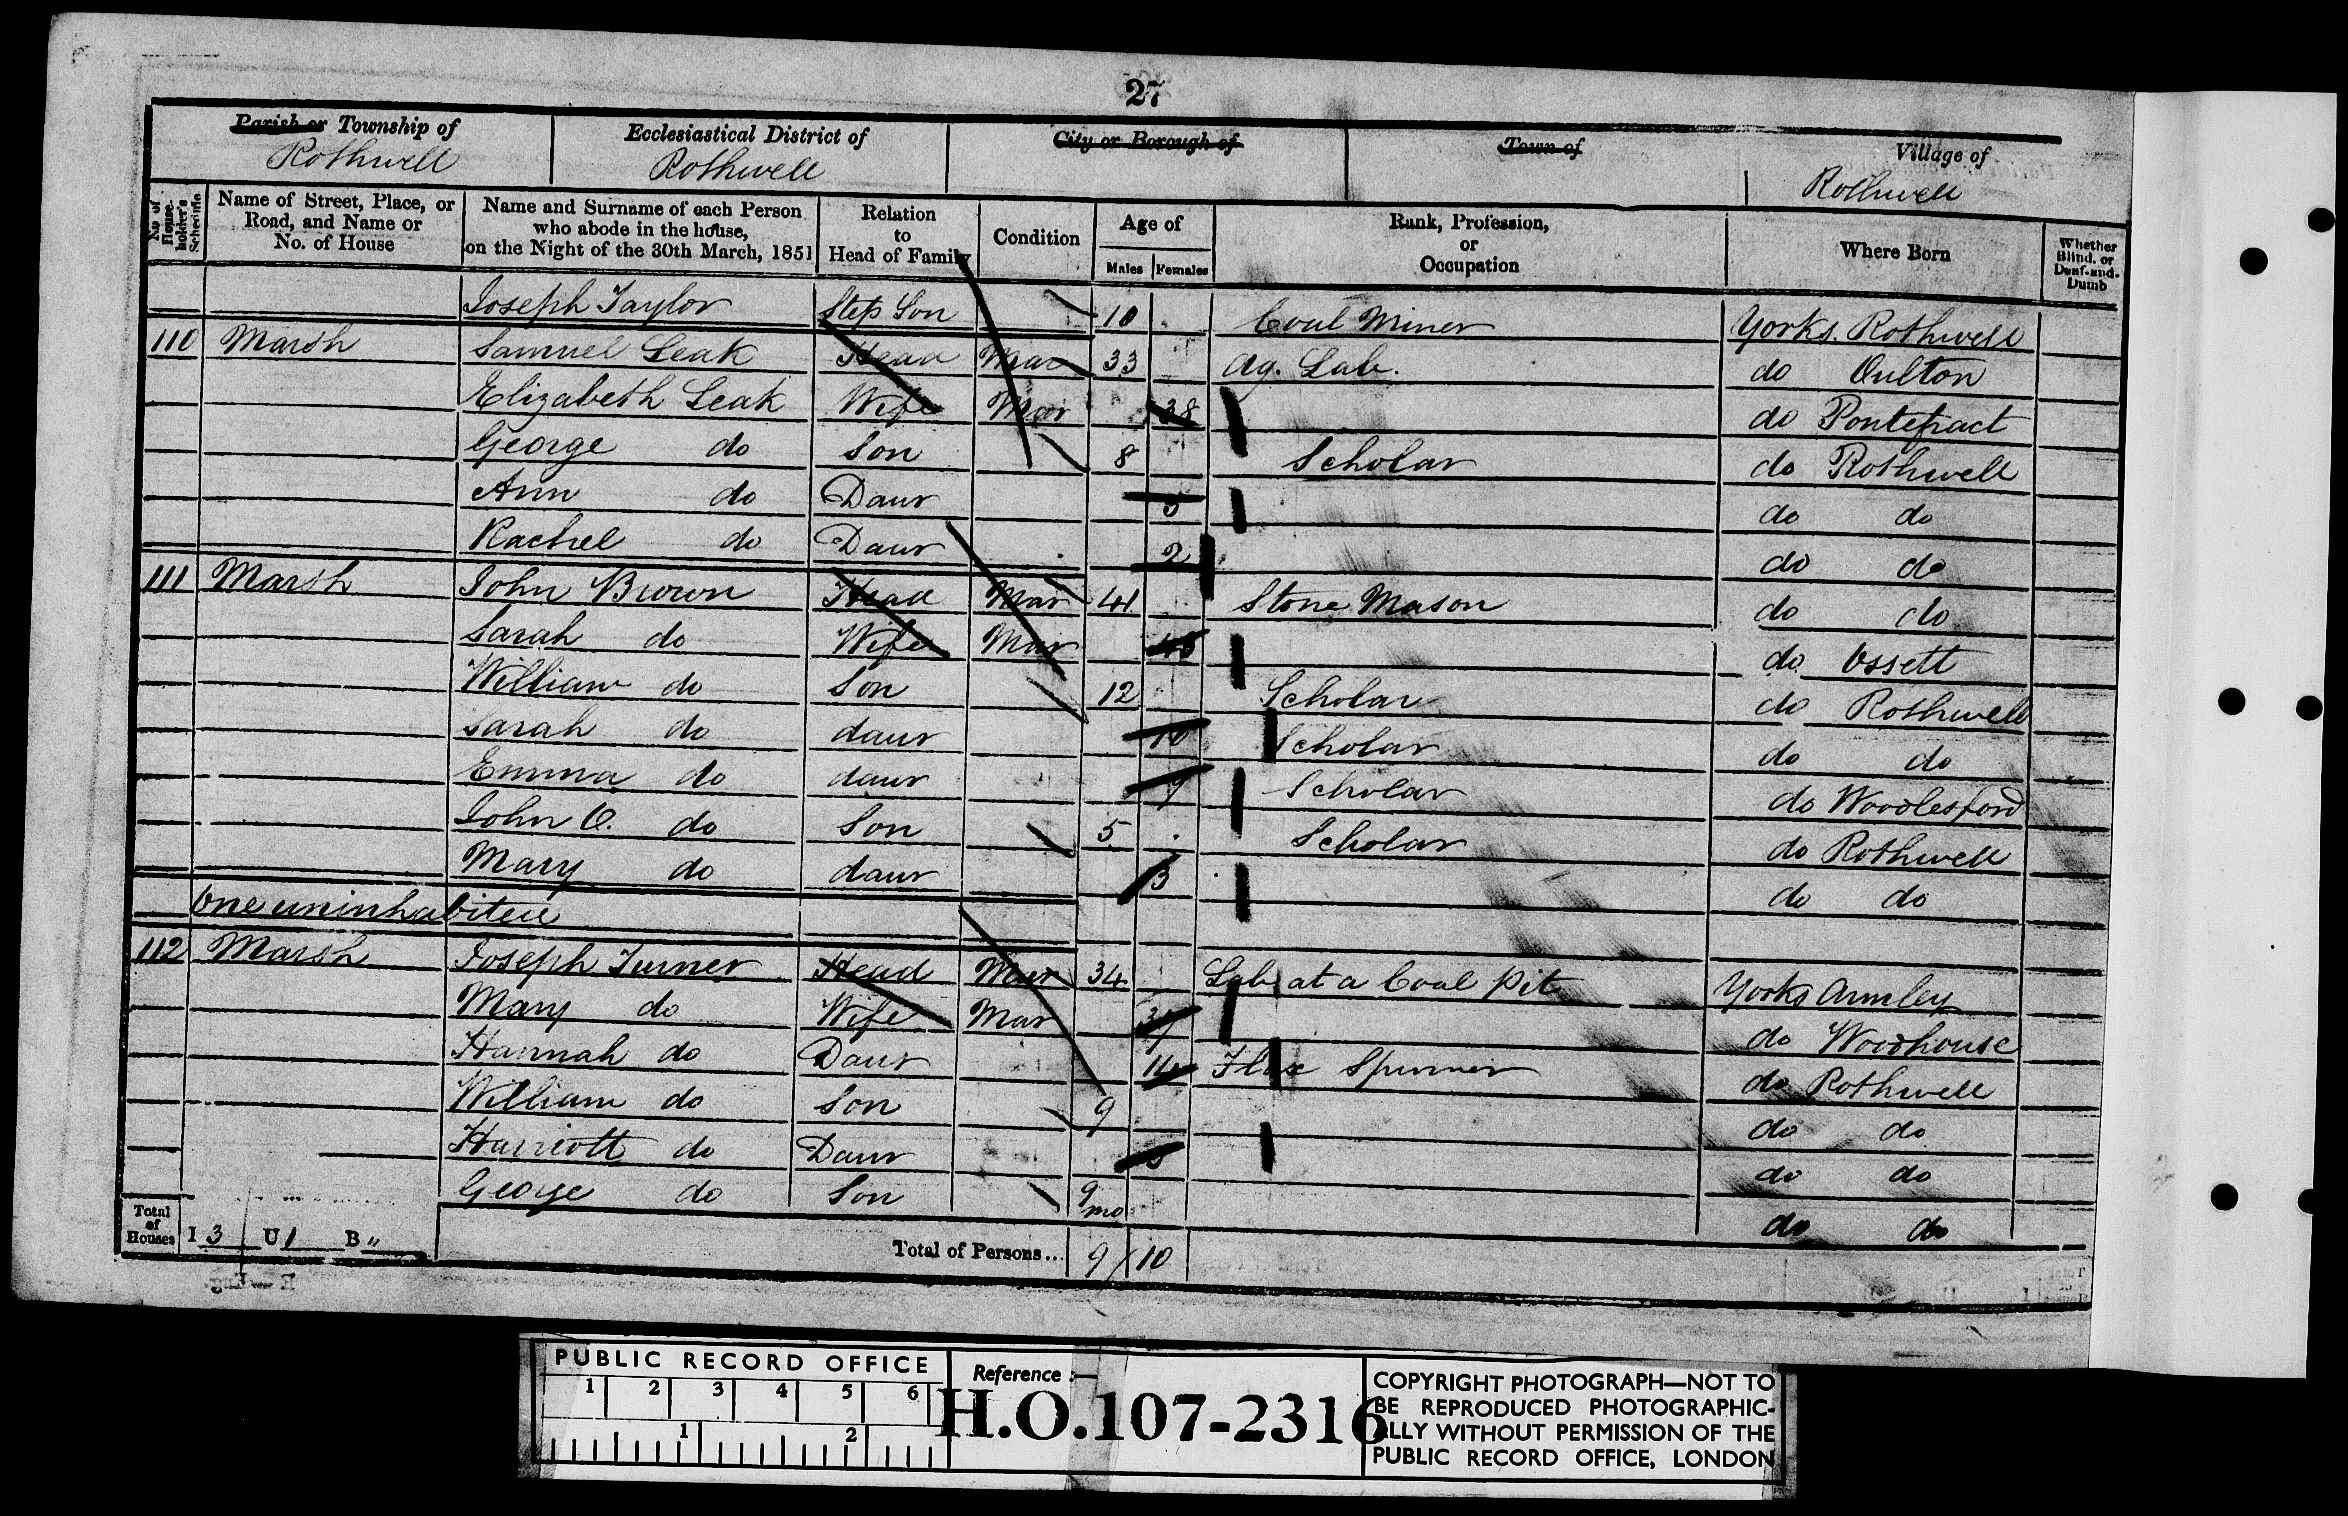 27
Parish or Township of
Rothwell
Ecclesiastical District of
Rothwell
City or Borough of
Town of
Village of
Rothwell
No. of House-holder's Schedule
Name of Street, Place, or Road, and Name or No. of House
Name and Surname of each Person who abode in the house, on the Night of the 30th March, 1851
Relation to Head of Family
Condition
Age of
Males Females
Rank, Profession, or Occupation
Where Born
Whether Blind, or Deaf-and-Dumb
Joseph Taylor Step Son 10 Coal Miner Yorks. Rothwell
110 Marsh Samuel Leak Head Mar 33 Ag. Lab. do Oulton
Elizabeth Leak Wife Mar 38 do Pontefract
George do Son 8 Scholar do Rothwell
Ann do Daur 5 do do
Rachel do Daur 2 do do
111 Marsh John Brown Head Mar 41 Stone Mason do do
Sarah do Wife Mar do Ossett
William do Son 12 Scholar do Rothwell
Sarah do daur 10 Scholar do do
Emma do daur 7 Scholar do Woodlesford
John O. do Son 5 Scholar do Rothwell
Mary do daur 3 do do
One uninhabited
112 Marsh Joseph Turner Head Mar 34 Lab at a Coal Pit Yorks Armley
Mary do Wife Mar do Woodhouse
Hannah do Daur 14 Flax Spinner do Rothwell
William do Son 9 do do
Harriott do Daur do do
George do Son 9 mo do do
Total of Houses I 3 U 1 B "
Total of Persons... 9 10
PUBLIC RECORD OFFICE
1 2 3 4 5 6
1 2
Reference :—
H.O.107-2316
COPYRIGHT PHOTOGRAPH—NOT TO
BE REPRODUCED PHOTOGRAPHIC-
ALLY WITHOUT PERMISSION OF THE
PUBLIC RECORD OFFICE, LONDON